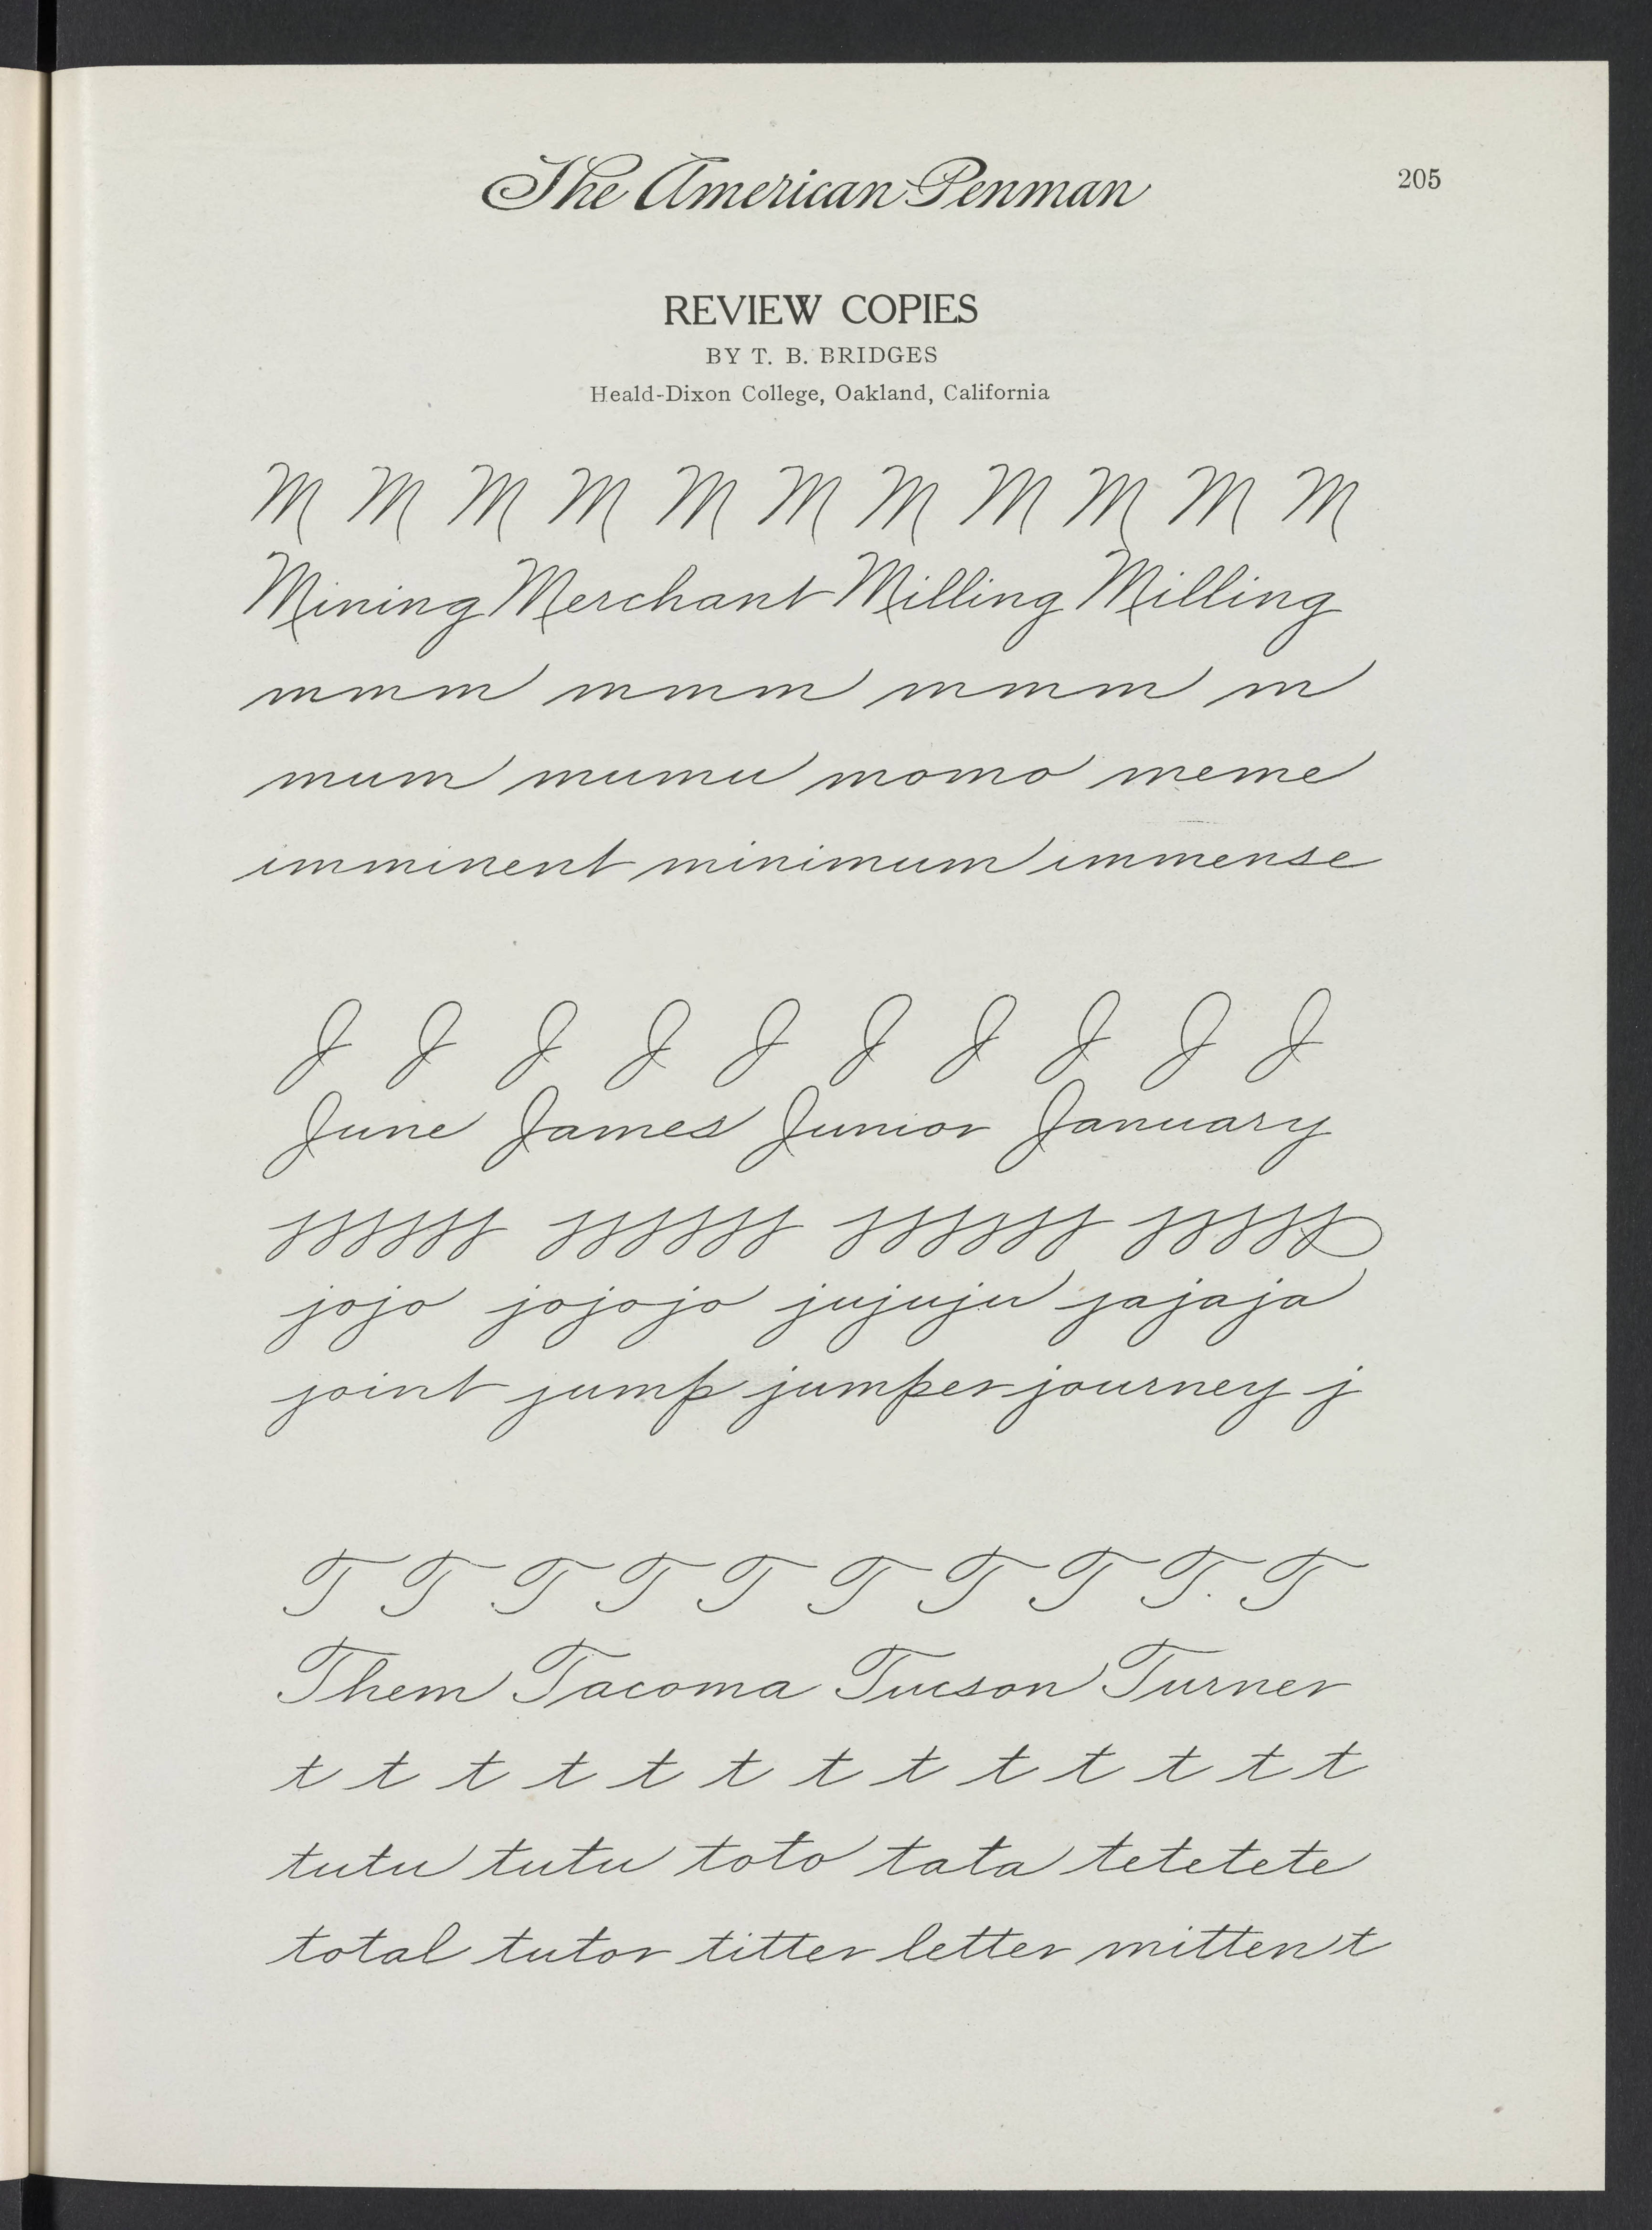 The American Penman
205
REVIEW COPIES
BY T. B. BRIDGES
Heald-Dixon College, Oakland, California
M M M M M M M M M M M
Mining Merchant Milling Milling
mmm mmm mmm m
mum mumu momo meme
imminent minimum immense
J J J J J J J J J J
June James Junior January
jjjjjj jjjjjjj jjjjjjj jjjjjj
jojo jojojo jujuju jajaja
joint jump jumper journey j
T T T T T T T T T T
Them Tacoma Tucson Turner
t t t t t t t t t t t t t
tutu tutu toto tata tetetete
total tutor titter letter mitten t